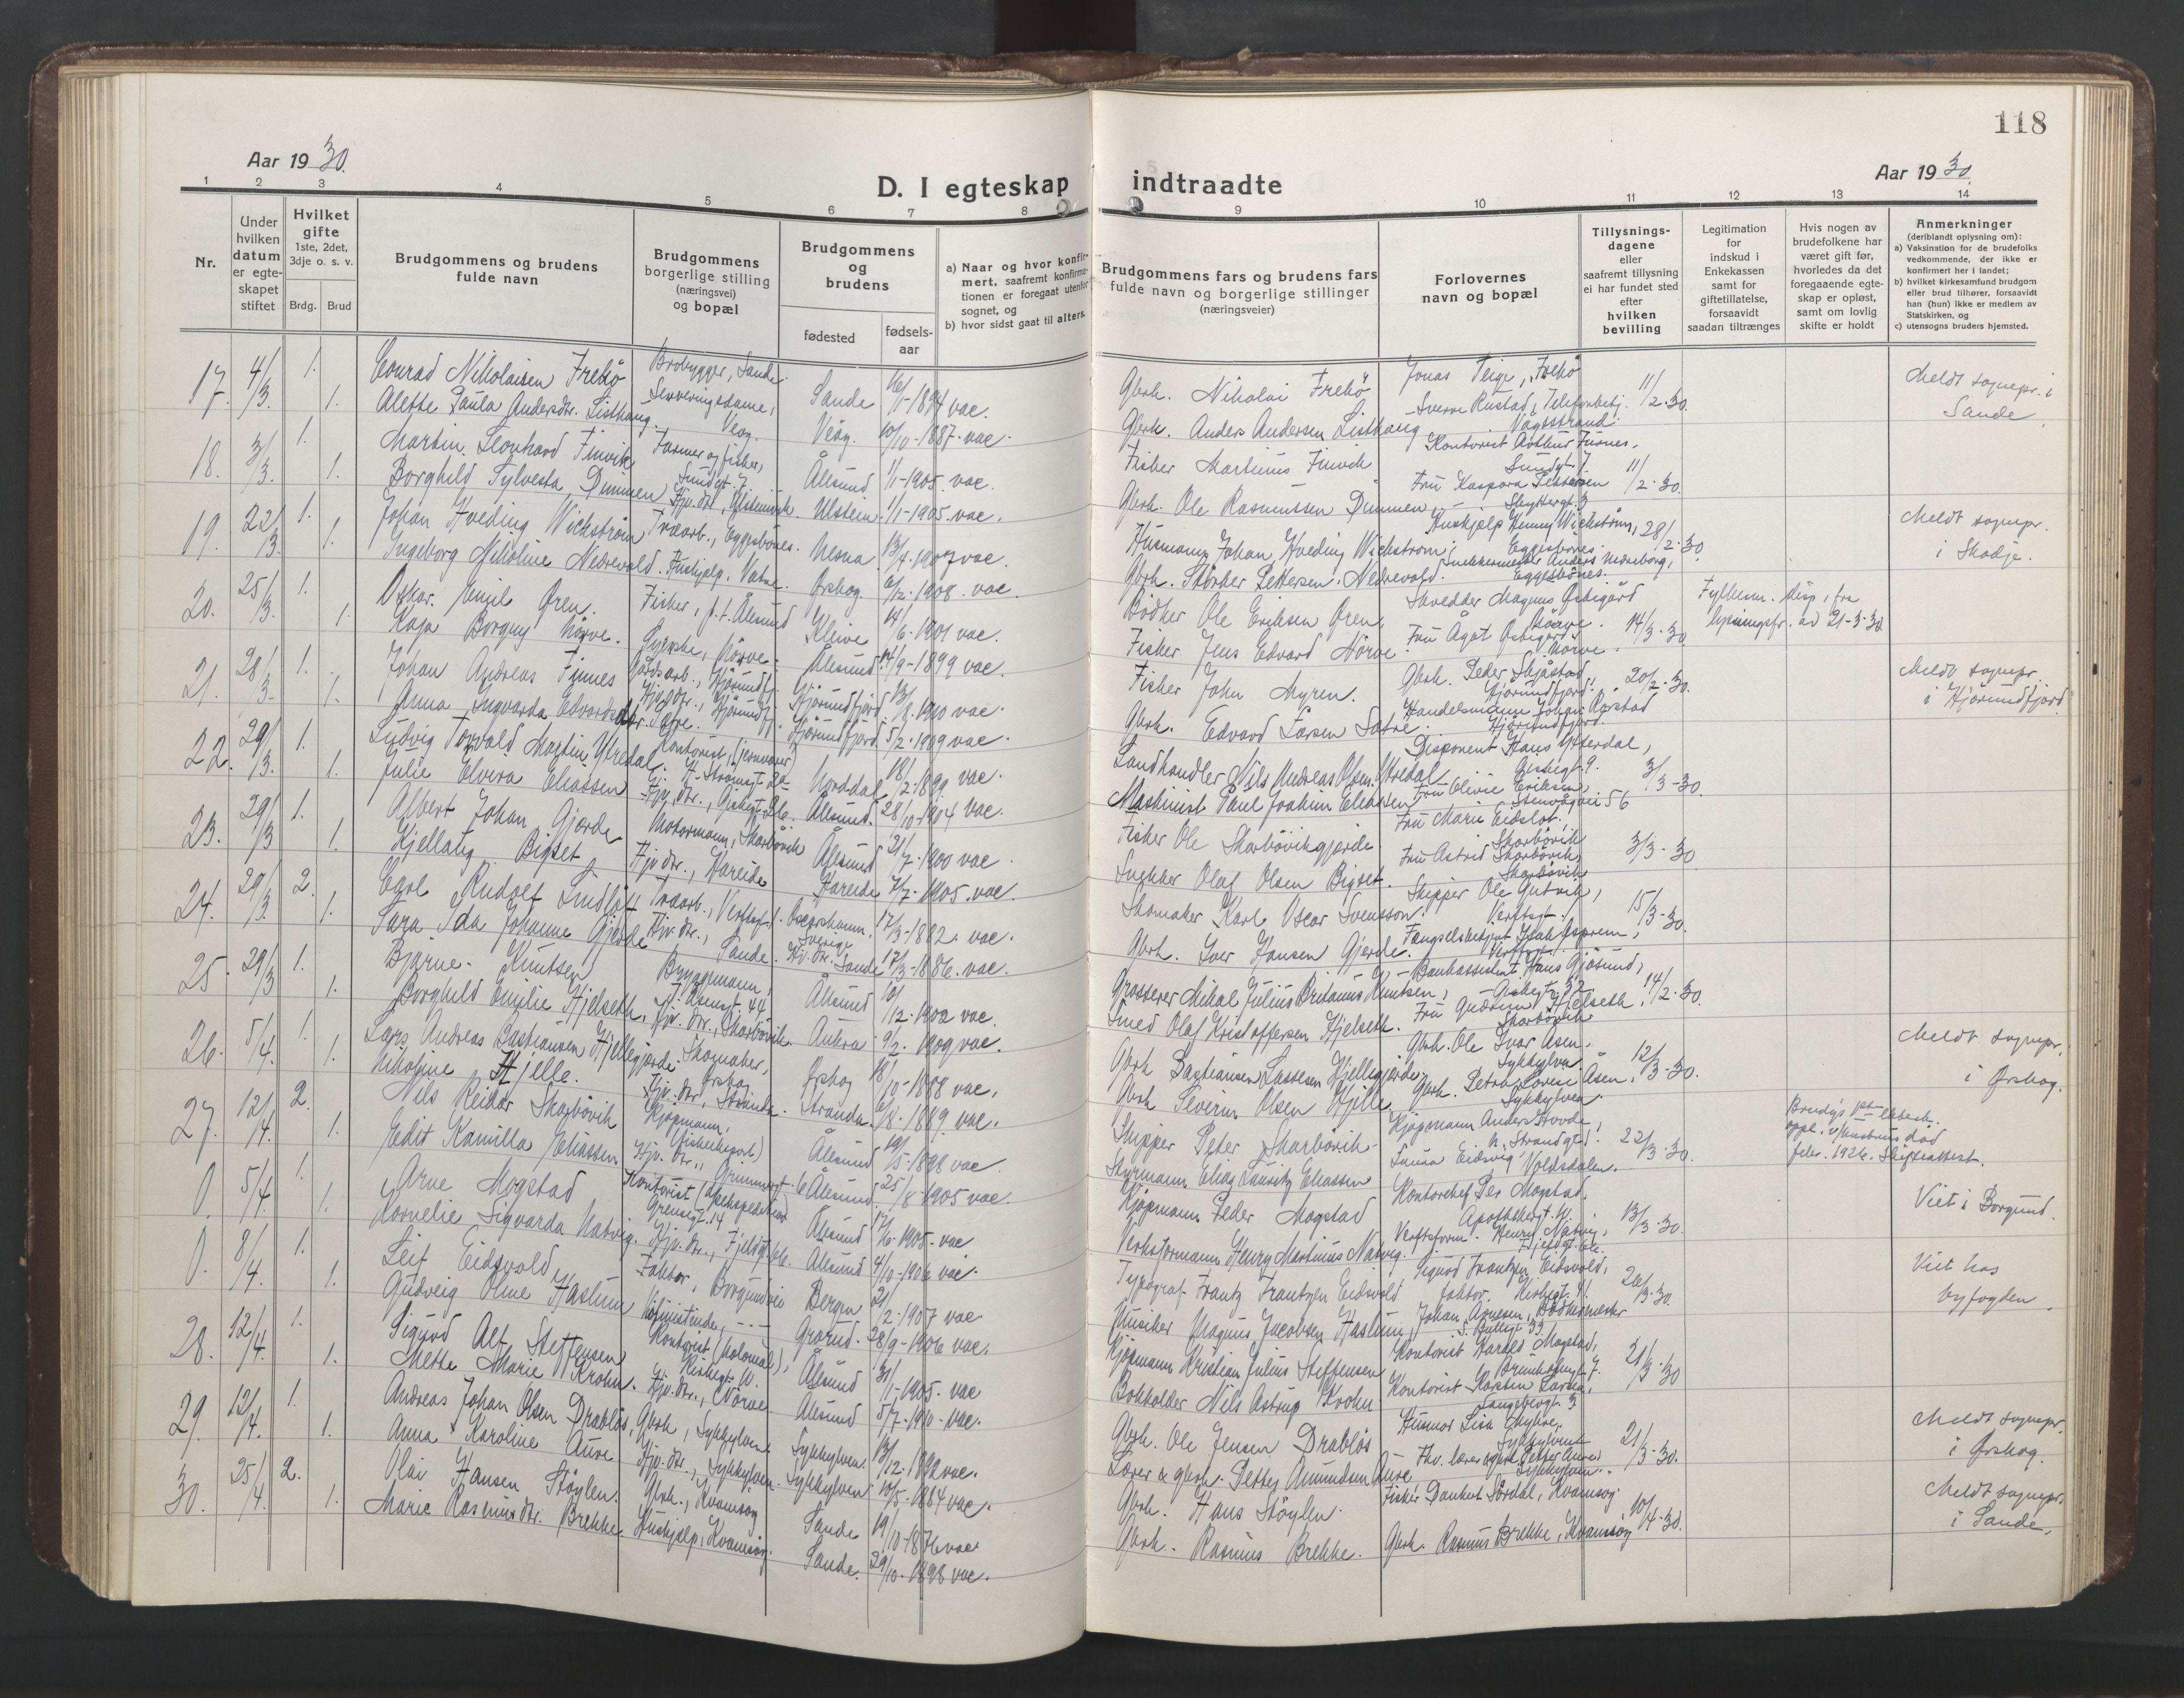 118
Aar 1930.
D. I egteskap indtraadte
Aar 1930.
1 2 3 4 5 6 7 8 9 10 11 12 13 14
Nr.
Under hvilken datum er egte-skapet stiftet
Hvilket gifte 1ste, 2det, 3dje o. s. v.
Brdg. Brud
Brudgommens og brudens fulde navn
Brudgommens borgerlige stilling (næringsvei) og bopæl
Brudgommens og brudens
fødested
fødsels-aar
a) Naar og hvor konfir-mert, saafremt konfirma-tionen er foregaat utenfor sognet, og
b) hvor sidst gaat til alters.
Brudgommens fars og brudens fars fulde navn og borgerlige stillinger (næringsveier)
Forlovernes navn og bopæl
Tillysnings-dagene eller saafremt tillysning ei har fundet sted efter hvilken bevilling
Legitimation for indskud i Enkekassen samt for giftetillatelse, forsaavidt saadan tiltrænges
Hvis nogen av brudefolkene har været gift før, hvorledes da det foregaaende egte-skap er opløst, samt om lovlig skifte er holdt
Anmerkninger (deriblandt oplysning om):
a) Vaksination for de brudefolks vedkommende, der ikke er konfirmert her i landet;
b) hvilket kirkesamfund brudgom eller brud tilhører, forsaavidt han (hun) ikke er medlem av Statskirken, og
c) utensogns bruders hjemsted.
17. 4/3. 1. Conrad Nikolaisen Frekø Brobygger, Sande. Sande 16/1-1894 vac. Gbrk. Nikolai Frekø Jonas Teige, Frekø 11/2-30. Meldt sognepr. i Sande.
1. Alette Paula Andersdtr. Listhaug. Serveringsdame, Veøy. Veøy. 10/10-1887. vac. Gbrk. Anders Andersen Listhaug Sverre Rustad, Telefonbetj. Vågsstrand.
18. 3/3. 1. Martin Leonhard Finvik Farmer og fisker, Sundgt. 7. Ålesund 1/1-1905. vac. Fisker Martinus Finvik Kontorist Arthur Furnes, Sundgt. 7. 11/2-30.
1. Borghild Sylvesta Dimmen Hjv. dtr., Ulsteinvik. Ulstein 1/1-1905. vac. Gbrk. Ole Rasmussen Dimmen Fru Kaspara Pettersen
19. 22/3. 1. Johan Hveding Wickstrøm Træarb., Eggesbønes. Nesna 13/4-1907 vac. Husmann Johan Hveding Wickstrøm. Huskjelp Jenny Wickstrøm, Eggesbønes. 28/2-30 Meldt sognepr. i Skodje.
1. Ingeborg Nikoline Nedrevold. Huskjelp, Vatne. Ørskog 6/12-1908. vac. Gbrk. Størker Pettersen Nedrevold. Snekkermester Anders Nedreborg, Eggesbønes.
20. 25/3. 1. Oskar Emil Øren. Fisker, p.t. Ålesund Kleive 14/6-1901 vac. Bødker Ole Eriksen Øren, Skredder Magnus Østigård Nørve. 14/3-30 Fylkesm. disp. fra lysningsfr. av 21-3-30
1. Kaja Borgny Nørve. Syerske, Nørve. Ålesund 14/9-1899 vac. Fisker Jens Edvard Nørve. Fru Ågot Østigård Nørve.
21. 28/3. 1. Johan Andreas Finnes Gårdsarb., Hjørundfj. Hjørundfjord 13/8-1910 vac. Fisker John Myren. Gbrk. Peder Skjåstad Hjørundfjord. 20/2-30. Meldt sognepr. i Hjørundfjord.
1. Anna Ingvarda Edvardsdtr. Sætre. Hjv. dtr., Hjørundfj. Hjørundfjord. 5/2-1909 vac. Gbrk. Edvard Larsen Sætre. Handelsmann Johan Rørstad Hjørundfjord.
22. 29/3. 1. Ludvig Torvald Martin Ytredal. Kontorist (jernvarer) Norddal 18/2-1899 vac. Landhandler Nils Andreas Olsen Ytredal Disponent Hans Ytterdal, Giskegt. 9. 3/3-30.
1. Julie Elvira Eliassen Hjv. dtr., Ålesund. 28/10-1904 vac. Maskinist Paul Joakim Eliassen Fru Olivie Eriksen, Stenvågvei 56
23. 29/3 1. Albert Johan Gjerde Motormann, Skarbøvik Ålesund 21/7-1900 vac. Fisker Ole Skarbøvikgjerde Fru Marie Eidslot, Skarbøvik 3/3-30
1. Kjellaug Bigset Hjv. dtr., Hareide Hareide 7/7-1905. vac. Snekker Olaf Olsen Bigset. Fru Astrid Skarbøvik, Skarbøvik
24. 29/3. 2. Carl Rudolf Lindløf Træarb., Verftsgt. 1. Oscarshamn, Sverige 17/3-1882. vac. Skomaker Karl Oscar Svensson. Skipper Ole Gutvik, Verftsgt. 15/3-30.
1. Sara Ida Johanne Gjerde Hjv. dtr., Sande. Sande 17/3-1886. vac. Gbrk. Iver Hansen Gjerde. Fængselsbetjent Isak Asprem, Verftsgt.
25. 29/3 1. Bjarne Knutsen Bryggemann, Ålesund 10/12-1902 vac. Grosserer Mikal Julius Britanus Knutsen, Bankassistent Hans Gjøsund, Giskegt. 32 14/2-30.
1. Borghild Emilie Hjelseth. Hjv. dtr., Skarbøvik. Aukra 9/2-1909 vac. Smed Olaf Kristoffersen Hjelseth. Fru Gudrun Hjelseth, Skarbøvik
26. 5/4. 1. Lars Andreas Bastiansen Hjellegjerde Skomaker, Ørskog Ørskog 18/10-1888 vac. Gbrk Bastiansen Lassesen Hjellegjerde. Gbrk. Ole Ivar Åsen. Sykkylven 12/3-30. Meldt sognepr. i Ørskog.
1. Nikoline Hjelle. Hjv. dtr., Stranda. Stranda. 6/8-1889 vac. Gbrk Severin Olsen Hjelle. Gbrk. Petra Lovise Åsen, Sykkylven.
27. 12/4. 2. Nils Reidar Skarbøvik Kjøpmann, (fiskeeksport) Ålesund 10/5-1898 vac. Skipper Peder Skarbøvik Kjøpmann Anders Hovde, N. Strandgt. 1. 22/3-30.
1. Edit Kamilla Eliassen Hjv. dtr., Grimmergt. 6 Ålesund 25/8-1905 vac. Styrmann Elias Lauritz Eliassen Eidsvig, Voldsdalen.
0. 5/4. 1. Arne Mogstad Kontorist (Apeekspedition) Grensegt. 14 Ålesund 17/6-1905. vac Kjøpmann Peder Mogstad Kontorchef Per Mogstad, Apothekergt. 13/3-30. Viet i Borgund.
1. Kornelie Sigvarda Natvig. Hjv. dtr., Ålesund 4/10-1906 vac. Verksformann Henry Martinus Natvig. Henry Natvig,
0. 8/4. 1. Leif Eidsvold Faktor, Borgundvei Bergen 21/2-1907 vac Typograf Frantz Frantzen Eidsvold Sigurd Frantzen Eidsvold, faktor, Kirkegt. 4. 26/3-30. Viet hos byfogden.
1. Gudveig Oline Haslum Grorud. 28/9-1906 vac. Musiker Magnus Jacobsen Haslum, Johan Arnesen, Bødkermester
28. 12/4. 1. Sigurd Alf Steffensen Kontorist (kolonial), Ålesund 31/1-1905. vac Kjøpmann Kristian Julius Steffensen Kontorist Harald Mogstad, Brunholmgt. 7. 21/3-30
1. Mette Marie Krohn. Hjv. dtr., Nørve. Ålesund 5/7-1910 vac. Bokholder Nils Astrup Krohn Kontorist Karsten Larsen, Langebergt. 3
29. 12/4. 1. Andreas Johan Olsen Drabløs, Gbrk., Sykkylven. Sykkylven. 13/12-1892 vac. Gbrk. Ole Jensen Drabløs Lisa Myhre, Sykkylven 21/3-30. Meldt sognepr. i Ørskog.
1. Anna Karoline Aure Hjv. dtr., Sykkylven. Sykkylven 10/5-1884 vac. Lærer & gbrk. Petter Amundsen Aure Fhv. lærer Petter Aure, Sykkylven.
30. 25/4. 2. Olai Hansen Støylen. Gbrk., Kvamsøy Sande 19/10-1876 vac. Gbrk. Hans Støylen. Fisker Dankert Sørdal, Kvamsøy 10/4-30. Meldt sognepr. i Sande.
1. Marie Rasmusdtr. Brekke. Huskjelp, Kvamsøy. Sande. 29/10-1898 vac. Gbrk. Rasmus Brekke. Gbrk. Rasmus Brekke, Kvamsøy